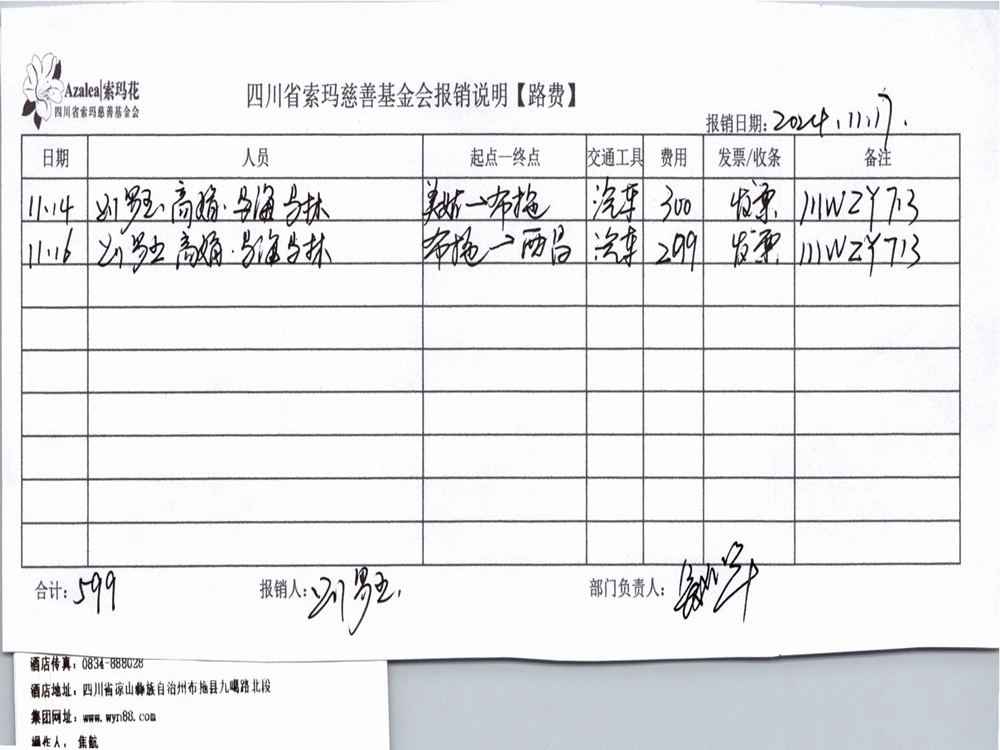 Azalea|索玛花
四川省索玛慈善基金会
四川省索玛慈善基金会报销说明【路费】
报销日期：2024.11.17.
日期 人员 起点—终点 交通工具 费用 发票/收条 备注
11.14 高 海 林 →布拖 汽车 300 发票 川WZY713
11.16 高 海 林 布拖→西昌 汽车 299 发票 川WZY713
合计：599 报销人： 部门负责人：
酒店传真：0834-888028
酒店地址：四川省凉山彝族自治州布拖县九曙路北段
集团网址：www.wyn88.com
操作人：焦航